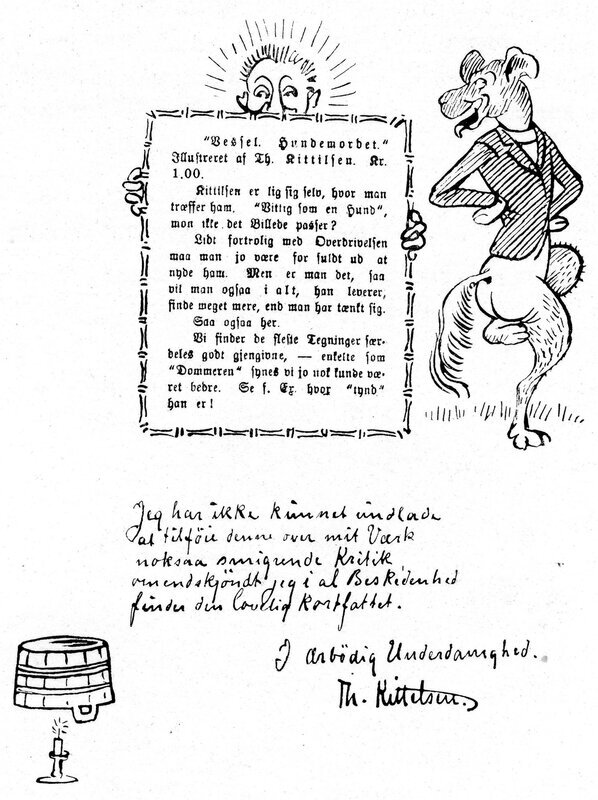 "Vessel. Hundemordet."
Illustreret af Th. Kittilsen. Kr.
1,00.
Kittilsen er lig sig selv, hvor man
træffer ham. "Vittig som en Hund",
mon ikke det Billede passer?
Lidt fortrolig med Overdrivelsen
maa man jo være for fuldt ud at
nyde ham. Men er man det, saa
vil man ogsaa i alt, han leverer,
finde meget mere, end man har tænkt sig.
Saa ogsaa her.
Vi finder de fleste Tegninger sær-
deles godt gjengivne, — enkelte som
"Dommeren" synes vi jo nok kunde væ-
ret bedre. Se f. Ex. hvor "tynd"
han er!
Jeg har ikke kunnet undlade
at tilføie denne over mit Værk
noksaa smigrende Kritik
omendskjøndt jeg i al Beskedenhed
finder den lovlig kortfattet.
I ærbödig Underdanighed.
Th. Kittelsen.